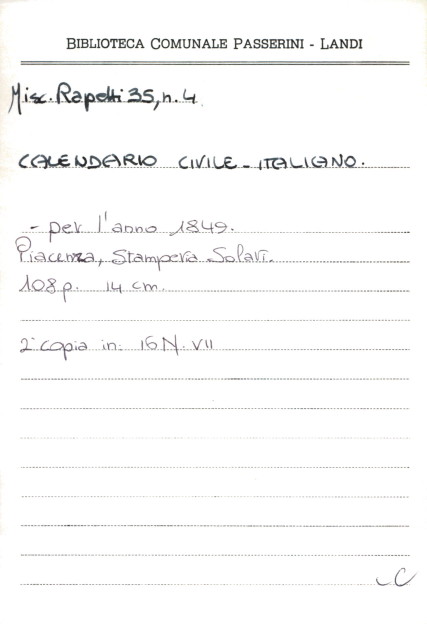 BIBLIOTECA COMUNALE PASSERINI - LANDI
Misc. Rapetti 35, n. 4
CALENDARIO CIVILE - ITALIANO.
- per l'anno 1849.
Piacenza, Stamperia Solari.
108 p. 14 cm.
2ª copia in: 16 N. VII
C